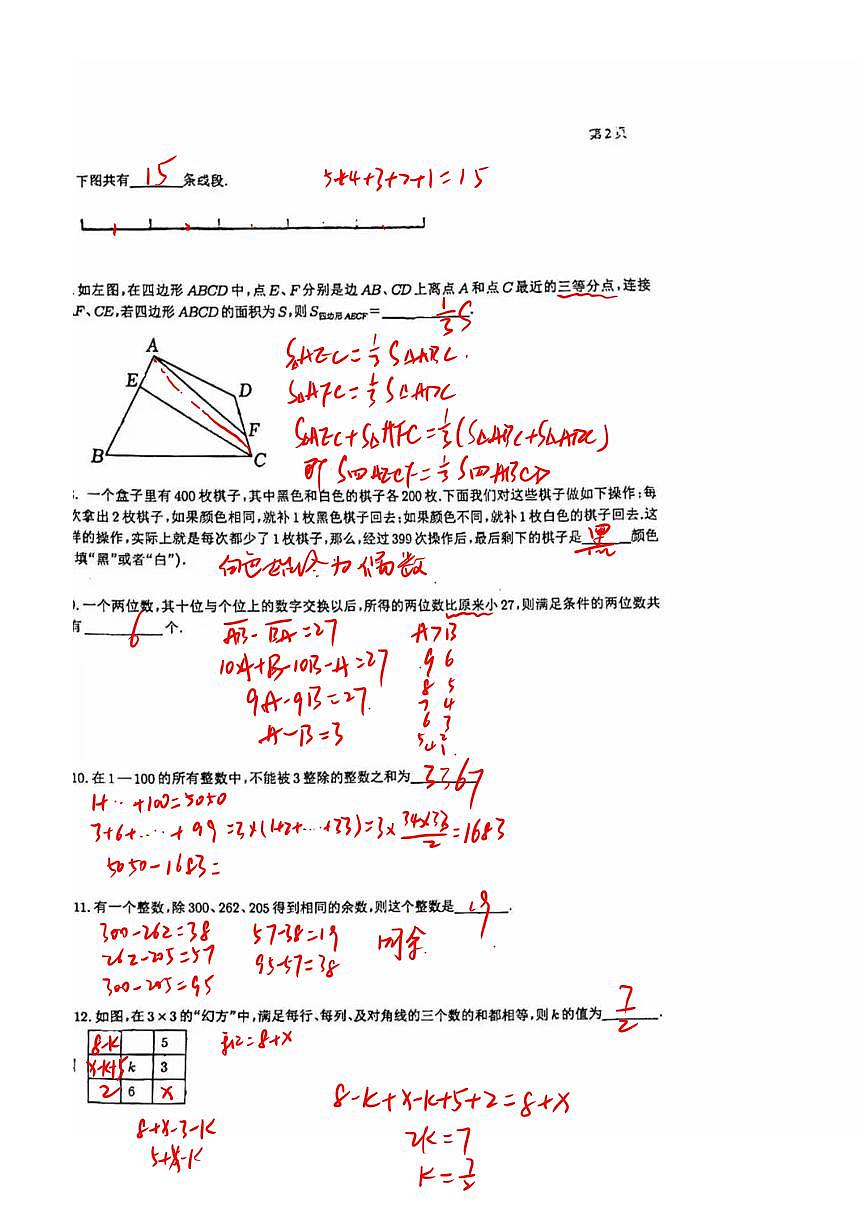 第2页
下图共有 15 条线段.
5+4+3+2+1=15
.如左图,在四边形 ABCD 中,点 E、F 分别是边 AB、CD 上离点 A 和点 C 最近的三等分点,连接
F、CE,若四边形 ABCD 的面积为 S,则 S四边形AECF= 1/3 S.
A
E
D
F
B
C
S△AEC=1/3 S△ABC.
S△AFC=1/3 S△ADC
S△AEC+S△AFC=1/3(S△ABC+S△ADC)
即 S四AECF=1/3 S四ABCD
. 一个盒子里有 400 枚棋子,其中黑色和白色的棋子各 200 枚.下面我们对这些棋子做如下操作:每
次拿出 2 枚棋子,如果颜色相同,就补 1 枚黑色棋子回去;如果颜色不同,就补 1 枚白色的棋子回去.这
样的操作,实际上就是每次都少了 1 枚棋子,那么,经过 399 次操作后,最后剩下的棋子是 黑 颜色
填“黑”或者“白”).
白色 为偶数
.一个两位数,其十位与个位上的数字交换以后,所得的两位数比原来小 27,则满足条件的两位数共
有 6 个.
AB-BA=27
10A+B-10B-A=27
9A-9B=27.
A-B=3
A>B
9 6
8 5
7 4
6 3
5 2
4 1.
10. 在 1—100 的所有整数中,不能被 3 整除的整数之和为 3367
1+…+100=5050
3+6+…+99=3×(1+2+…+33)=3×34×33/2=1683
5050-1683=
11. 有一个整数,除 300、262、205 得到相同的余数,则这个整数是 19.
300-262=38
57-38=19
同余.
262-205=57
95-57=38
300-205=95
12. 如图,在 3×3 的“幻方”中,满足每行、每列、及对角线的三个数的和都相等,则 k 的值为 7/2.
8-k 5
x-k+5 k 3
2 6 x
=8+x
8+x-3-k
5+x-k
8-k+x-k+5+2=8+x
2k=7
k=7/2